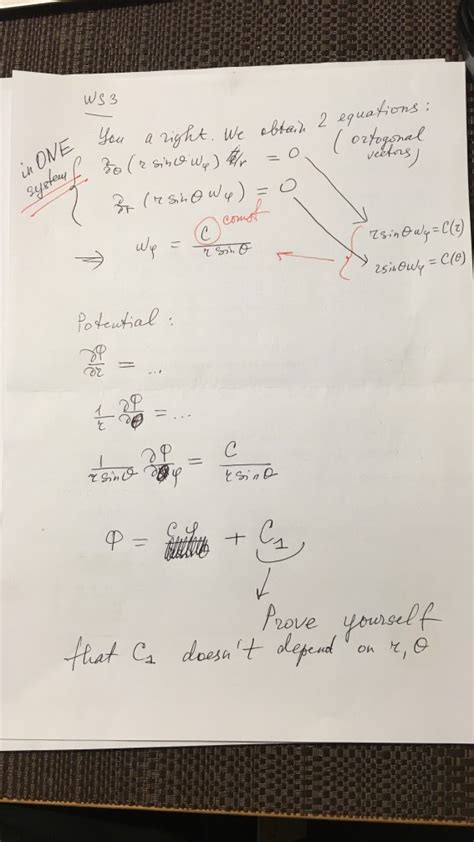 WS3
You a right. We obtain 2 equations:
(ortogonal vectors)
in ONE system
∂_θ (r sinθ w_φ) = 0
∂_r (r sinθ w_φ) = 0
r sinθ w_φ = C(r)
r sinθ w_φ = C(θ)
const
⇒ w_φ = C / (r sinθ)
Potential:
∂φ/∂r = ...
1/r ∂φ/∂θ = ...
1/(r sinθ) ∂φ/∂φ = C / (r sinθ)
φ = Cφ + C₁
Prove yourself
that C₁ doesn't depend on r, θ